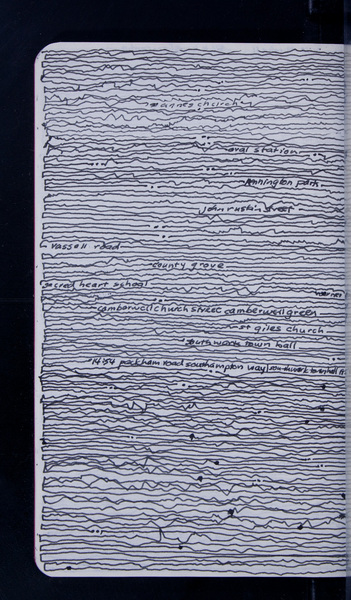 st annes church
oval station
kennington park
john ruskin street
vassall road
county grove
sacred heart school
camberwell church street camberwell green
st giles church
southwark town hall
14:54 peckham road southampton way southwark town hall